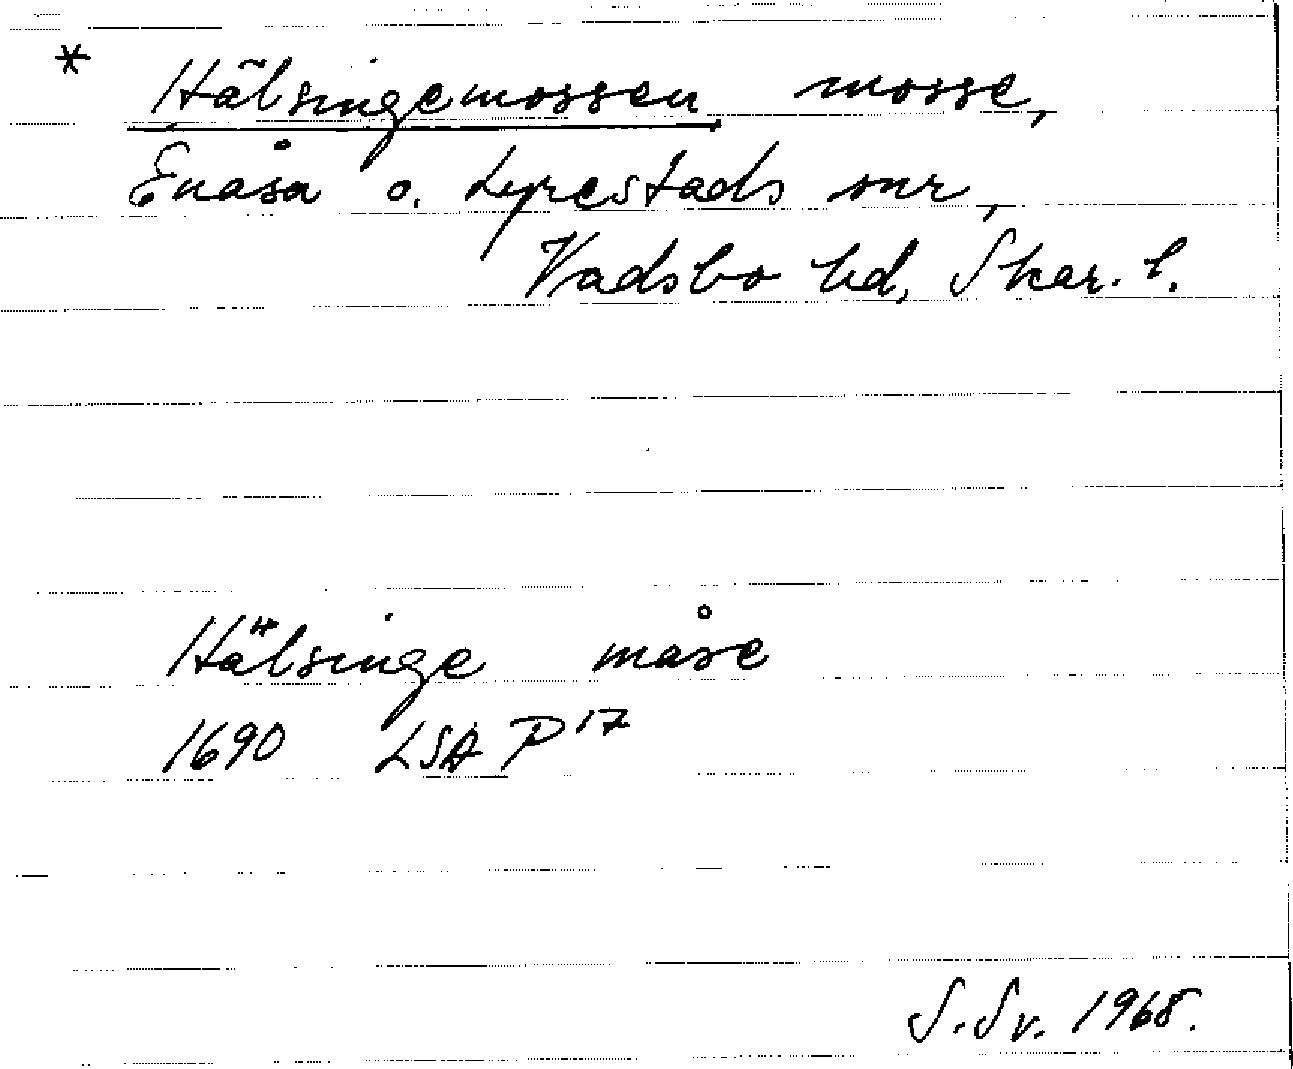 * Hälsingemossen mosse,
Enåsa o. Lyrestads snr,
Vadsbo hd, Skar. l.
Hälsinge måse
1690 LSA P 17
S. Sv. 1968.